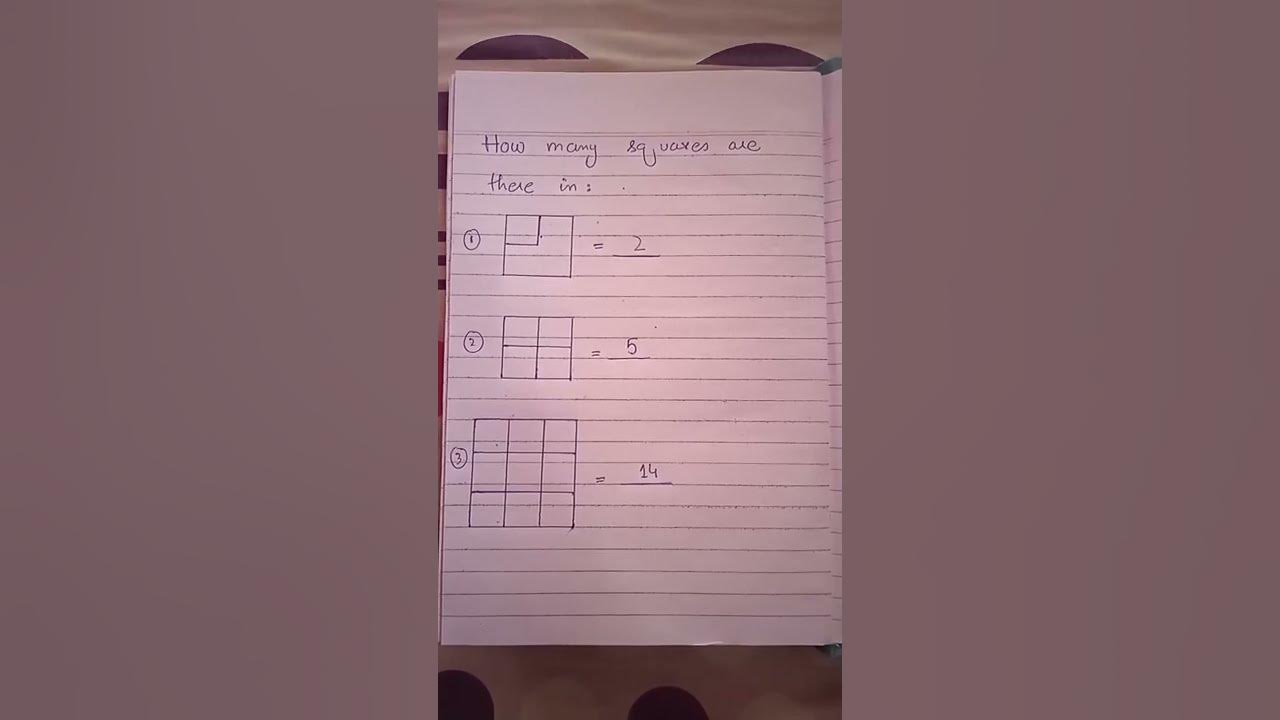 How many squares are
there in:
① = 2
② = 5
③ = 14